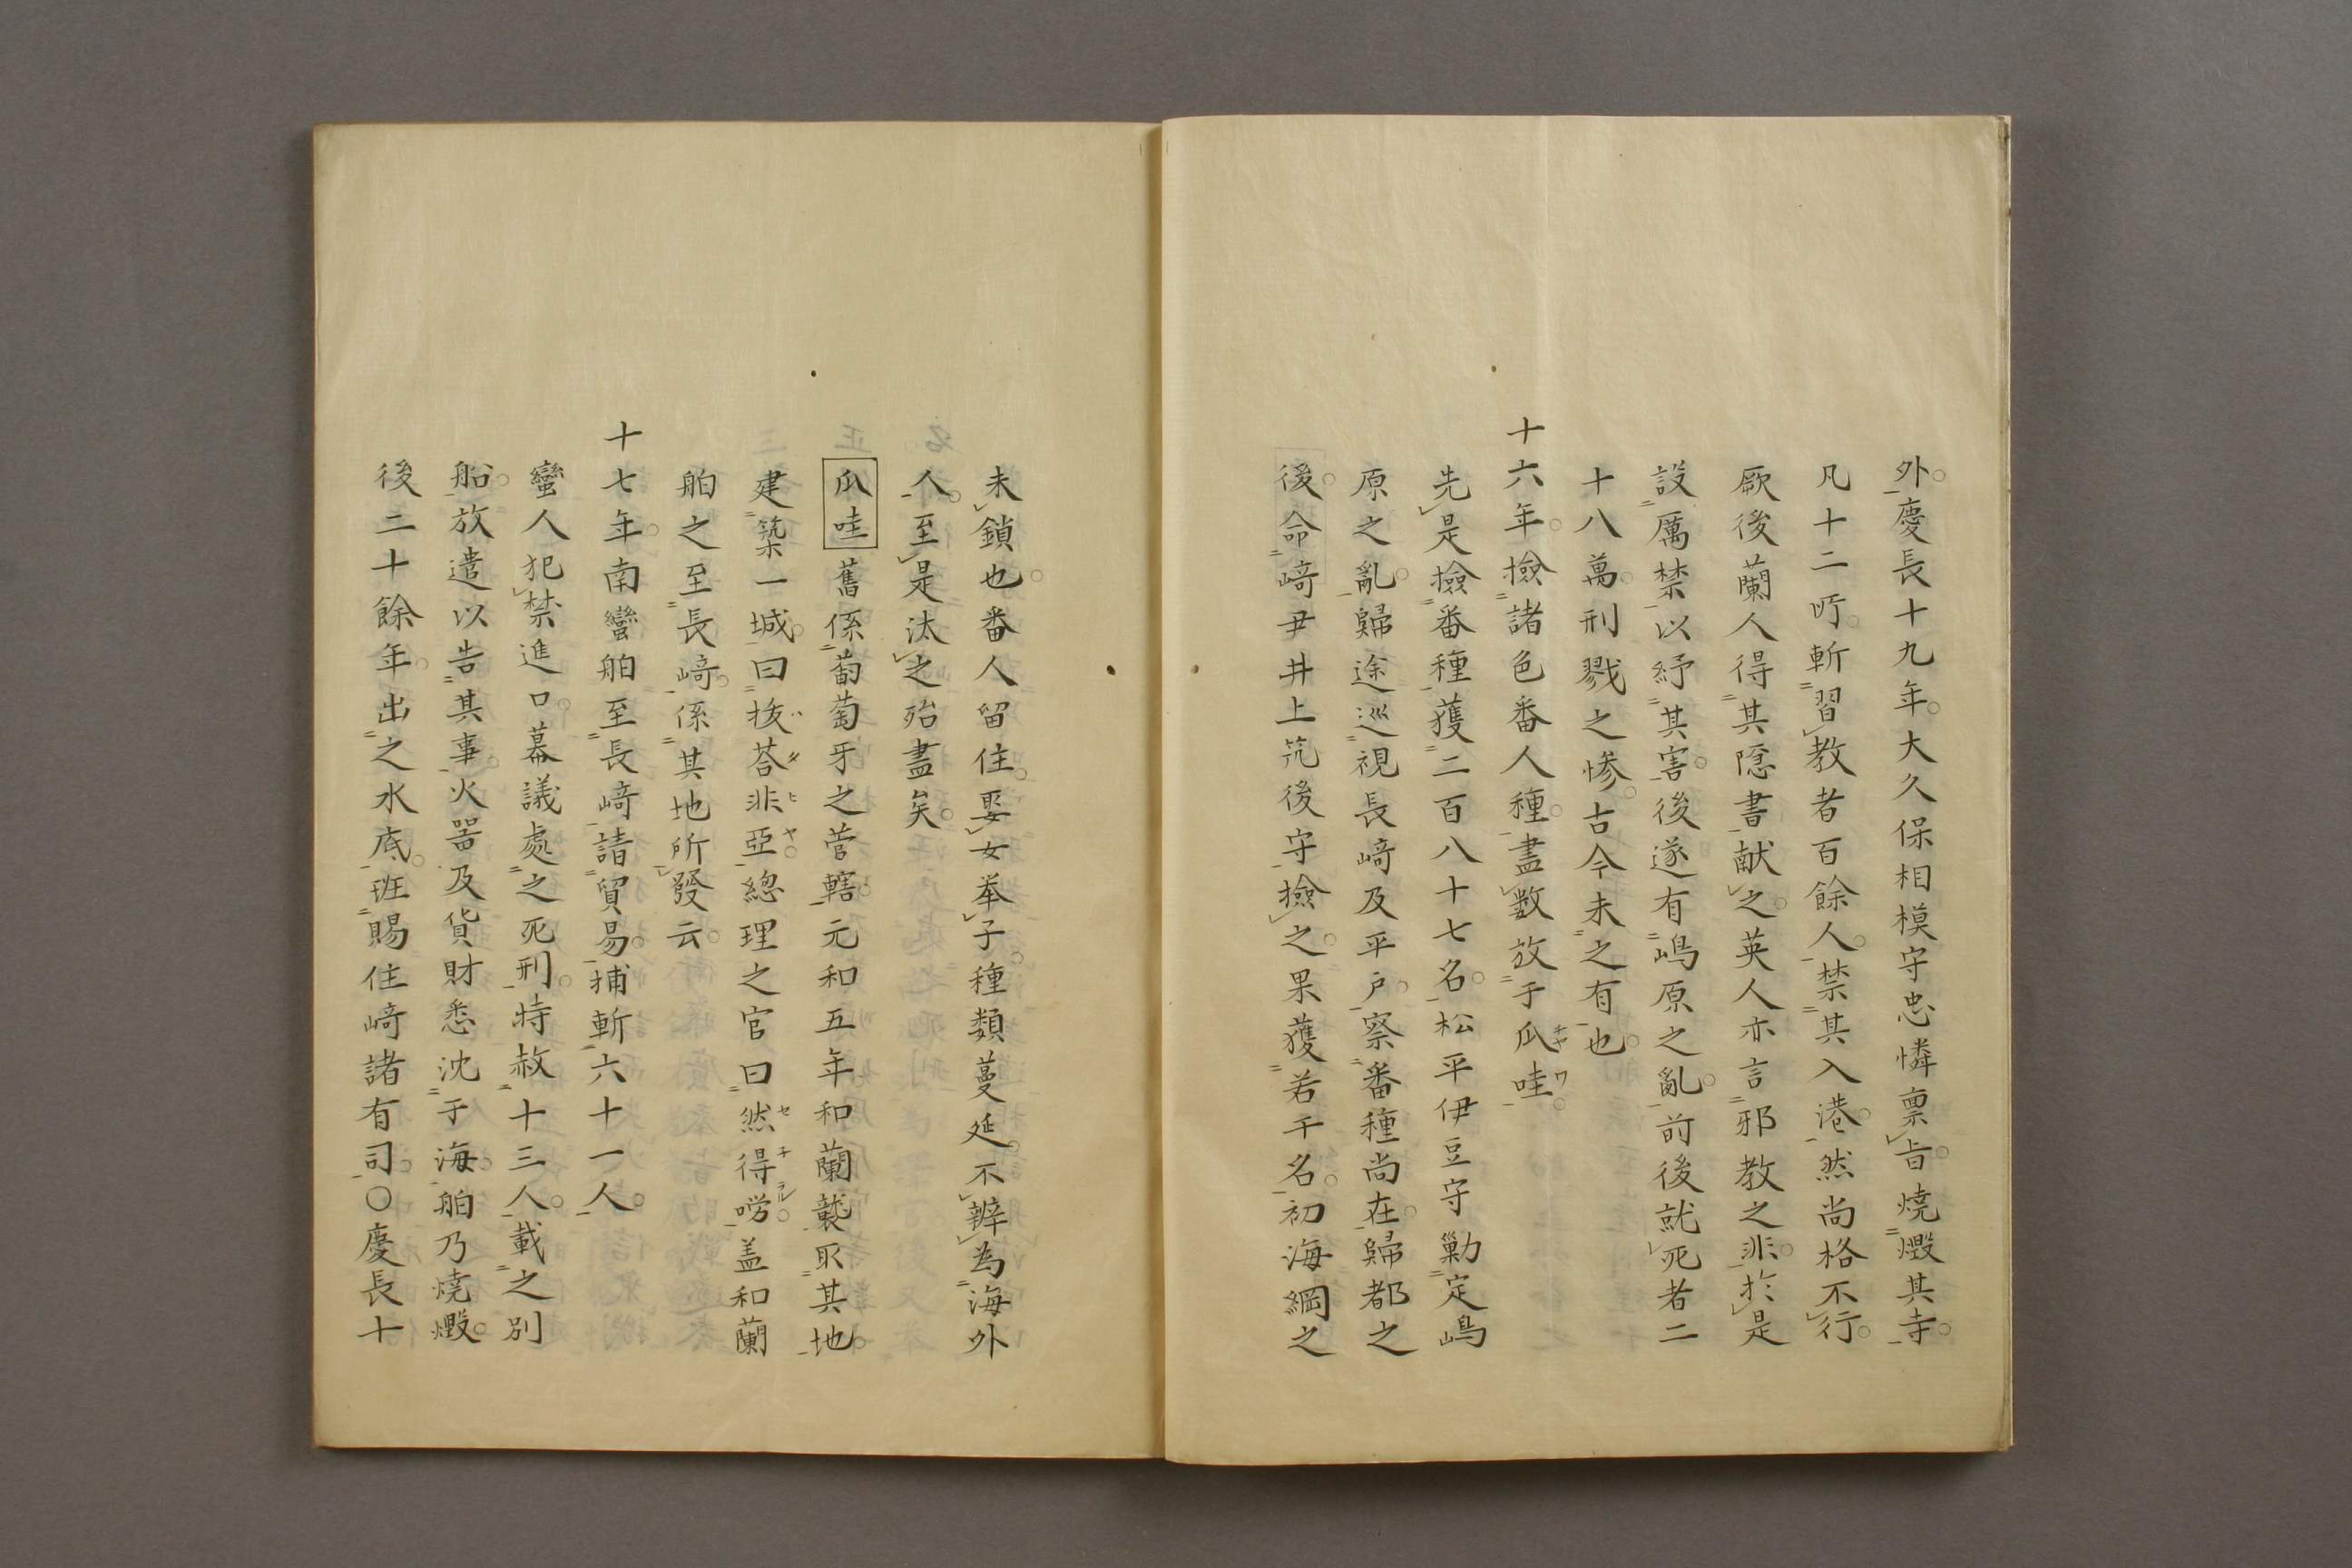 外。慶長十九年。大久保相模守忠憐禀旨。燒燬其寺。
凡十二所。斬習教者百餘人。禁其入港。然尚格不行。
厥後蘭人得其隱書献之。英人亦言邪教之非。於是
設厲禁以紓其害。後遂有嶋原之亂。前後就死者二
十八萬。刑戮之惨。古今未之有也。
十六年。撿諸色番人種。盡数放于瓜哇。
先是撿番種獲二百八十七名。松平伊豆守勦定嶋
原之亂。歸途巡視長﨑及平戶。察番種尚在。歸都之
後。命﨑尹井上筑後守撿之。果獲若干名。初海綱之
未鎖也。番人留住。娶女举子。種類蔓延。不辨為海外
人。至是汰之殆盡矣。
瓜哇舊係葡萄牙之菅轄。元和五年和蘭襲取其地。
建築一城。曰抜荅非亞。總理之官曰然得嘮。盖和蘭
舶之至長﨑。係其地所發云。
十七年。南蠻舶至長﨑請貿易。捕斬六十一人。
蠻人犯禁進口。幕議處之死刑。特赦十三人。載之别
船。放遣以告其事。火噐及貨財悉沈于海。舶乃燒燬。
後二十餘年。出之水底。班賜住﨑諸有司。〇慶長十